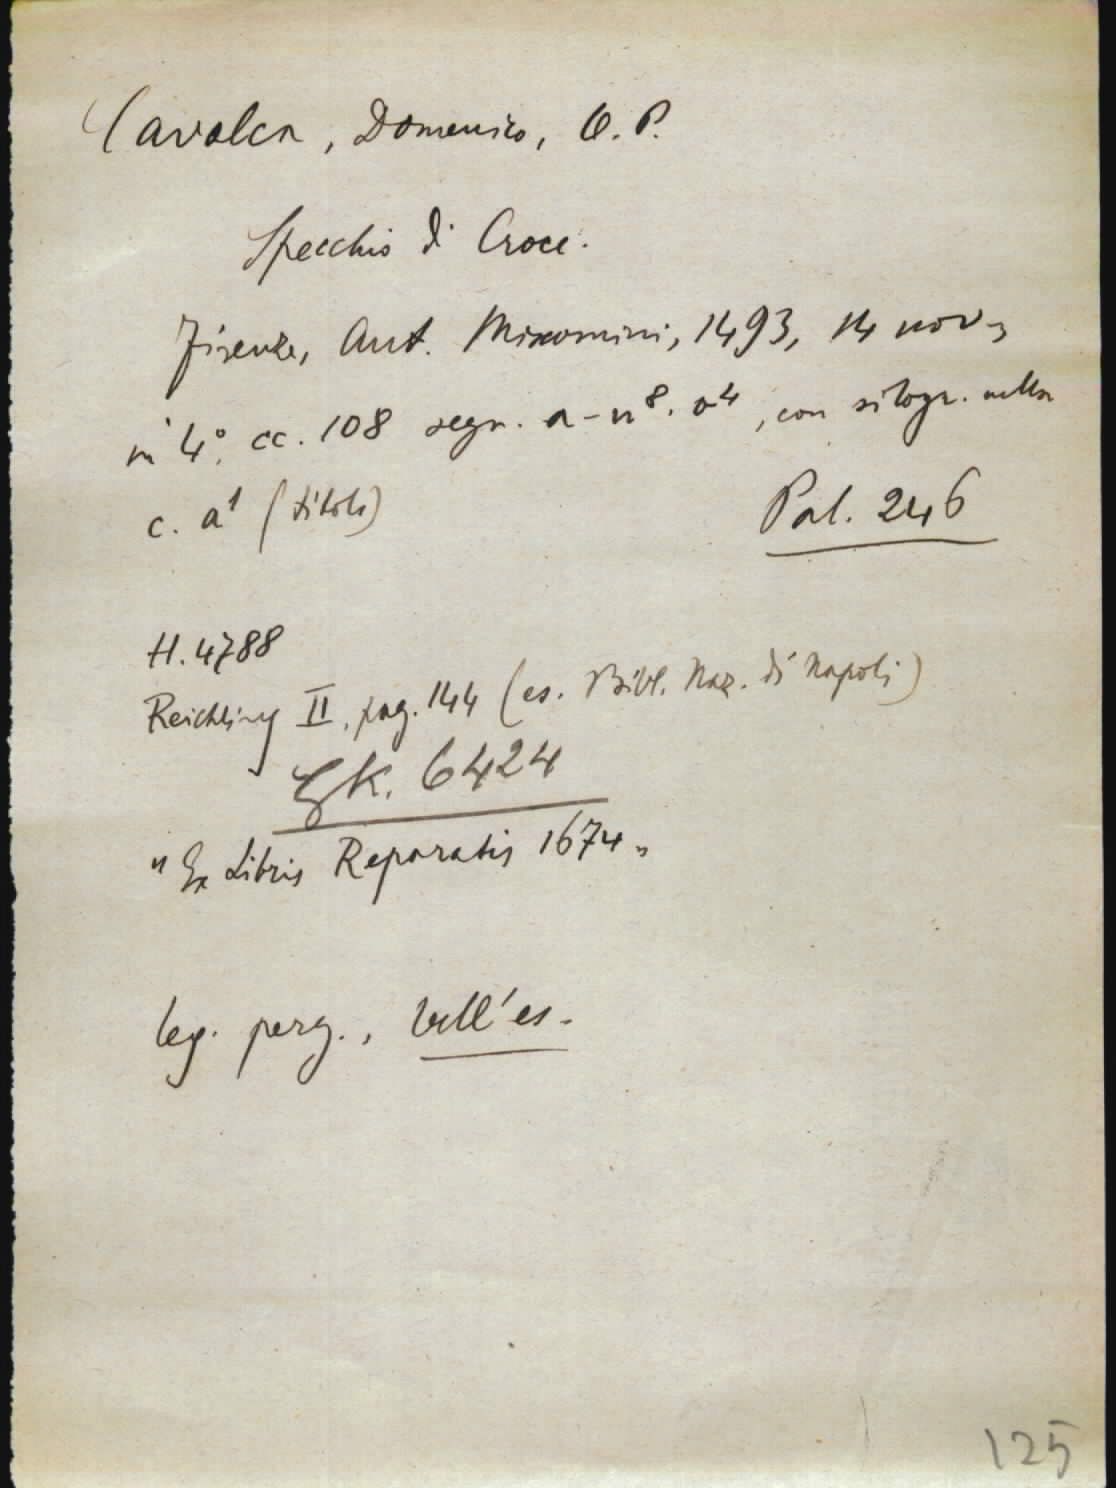 Cavalca, Domenico, O. P.
Specchio di Croce.
Firenze, Ant. Miscomini, 1493, 14 nov.,
in 4º, cc. 108 segn. a-n⁸. o⁴, con silogr. nella
c. a¹ (titolo)
Pal. 246
H. 4788
Reichling II, pag. 144 (es. Bibl. Naz. di Napoli)
Gk. 6424
"Ex Libris Reparatis 1674"
leg. perg., bell'es.
125